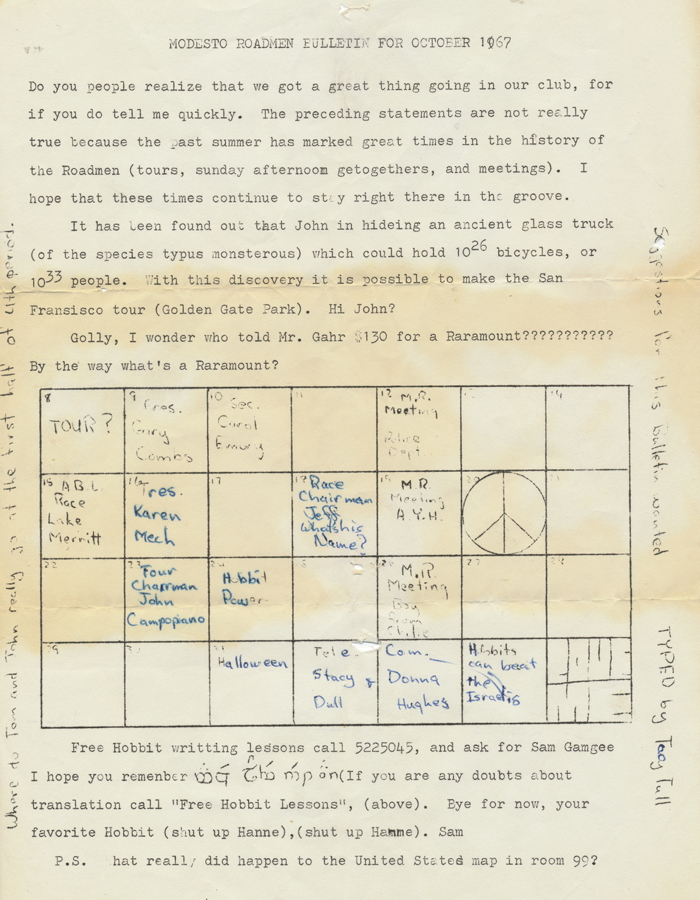 MODESTO ROADMEN BULLETIN FOR OCTOBER 1967
Do you people realize that we got a great thing going in our club, for
if you do tell me quickly. The preceding statements are not really
true because the past summer has marked great times in the history of
the Roadmen (tours, sunday afternoom getogethers, and meetings). I
hope that these times continue to stay right there in the groove.
It has been found out that John in hideing an ancient glass truck
(of the species typus monsterous) which could hold 10^26 bicycles, or
10^33 people. With this discovery it is possible to make the San
Fransisco tour (Golden Gate Park). Hi John?
Golly, I wonder who told Mr. Gahr $130 for a Raramount???????????
By the way what's a Raramount?
8
TOUR?
9
Pres.
Gary
Combs
10
Sec.
Carol
Emory
11
12
M.R.
Meeting
Police
Dept.
13
14
15
A.B.L.
Race
Lake
Merritt
16
Tres.
Karen
Mech
17
18
Race
Chairman
Jeff
Whatshis
Name?
19
M.R.
Meeting
A.Y.H.
20
21
22
23
Tour
Chairman
John
Campopiano
24
Hobbit
Power
26
M.R.
Meeting
27
28
29
30
31
Halloween
Tele.
Stacy &
Dull
Com.
Donna
Hughes
Hobbits
can beat
the
Israelis
Free Hobbit writting lessons call 5225045, and ask for Sam Gamgee
I hope you remenber (If you are any doubts about
translation call "Free Hobbit Lessons", (above). Eye for now, your
favorite Hobbit (shut up Hanne),(shut up Hamme). Sam
P.S. hat really did happen to the United States map in room 99?
Where do Tom and John really go at the first half of
Suggestions for this bulletin wanted
TYPED by Tull